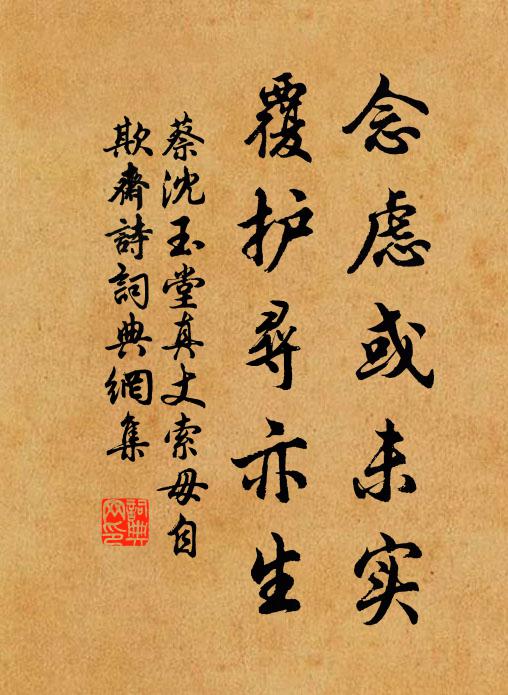 念虑或未实
覆护寻亦生
蔡沈玉堂真丈索毋自
欺斋诗词典网集
詞典
网印